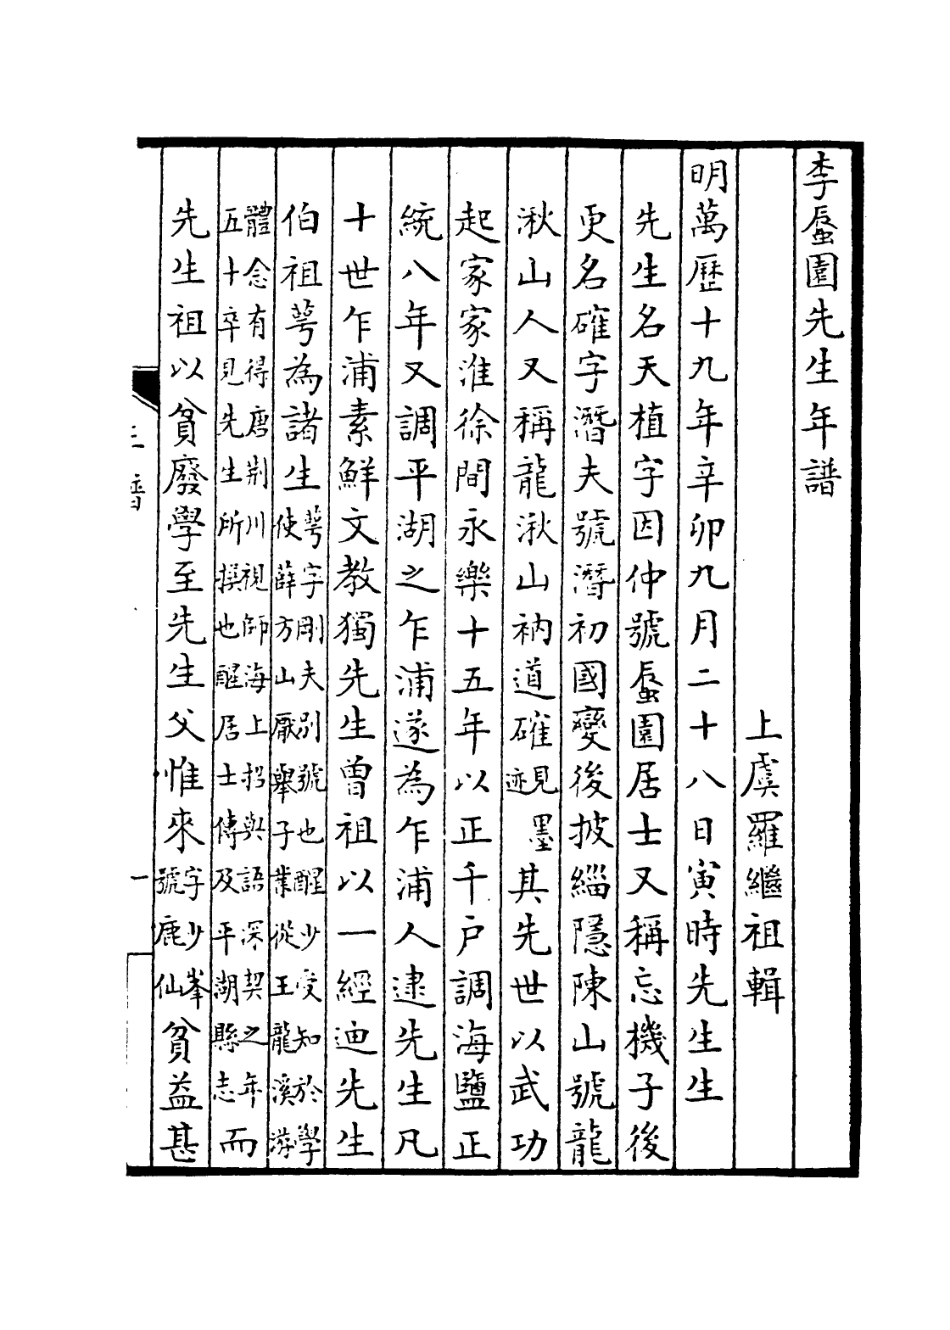 李蜃園先生年譜
上虞羅繼祖輯
明萬歷十九年辛卯九月二十八日寅時先生生
先生名天植字因仲號蜃園居士又稱忘機子後
更名確字潛夫號潛初國變後披緇隱陳山號龍
湫山人又稱龍湫山衲道確見墨迹其先世以武功
起家家淮徐間永樂十五年以正千戶調海鹽正
統八年又調平湖之乍浦遂為乍浦人逮先生凡
十世乍浦素鮮文教獨先生曾祖以一經迪先生
伯祖萼為諸生萼字剛夫別號也醒少受知於學使薛方山厭舉子業從王龍溪游
體念有得唐荊川視師海上招與語深契之年五十卒見先生所撰也醒居士傳及平湖縣志而
先生祖以貧廢學至先生父惟來字少峯號鹿仙貧益甚
一